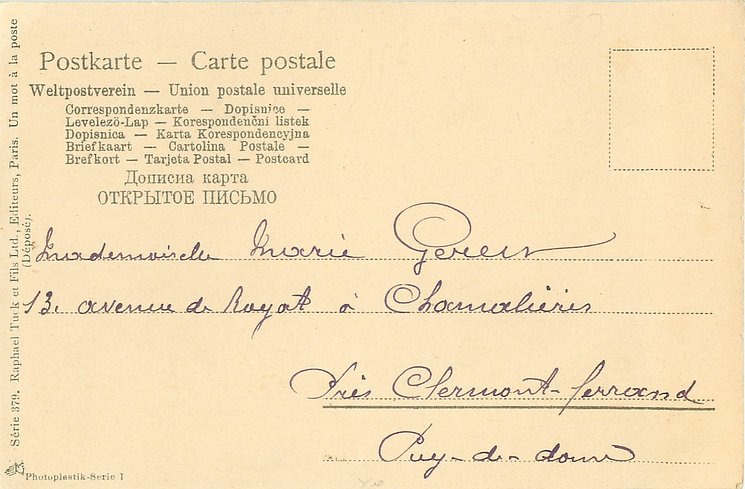 Postkarte — Carte postale
Weltpostverein — Union postale universelle
Correspondenzkarte — Dopisnice —
Levelező-Lap — Korespondenční listek
Dopisnica — Karta Korespondencyjna
Briefkaart — Cartolina Postale —
Brefkort — Tarjeta Postal — Postcard
Дописна карта
ОТКРЫТОЕ ПИСЬМО
Mademoiselle Marie
13. avenue de Royat à Chamalières
Près Clermont-ferrand
Puy-de-dome
Série 379. Raphael Tuck et Fils Ltd., Editeurs, Paris. Un mot à la poste
(Déposé).
Photoplastik-Serie I